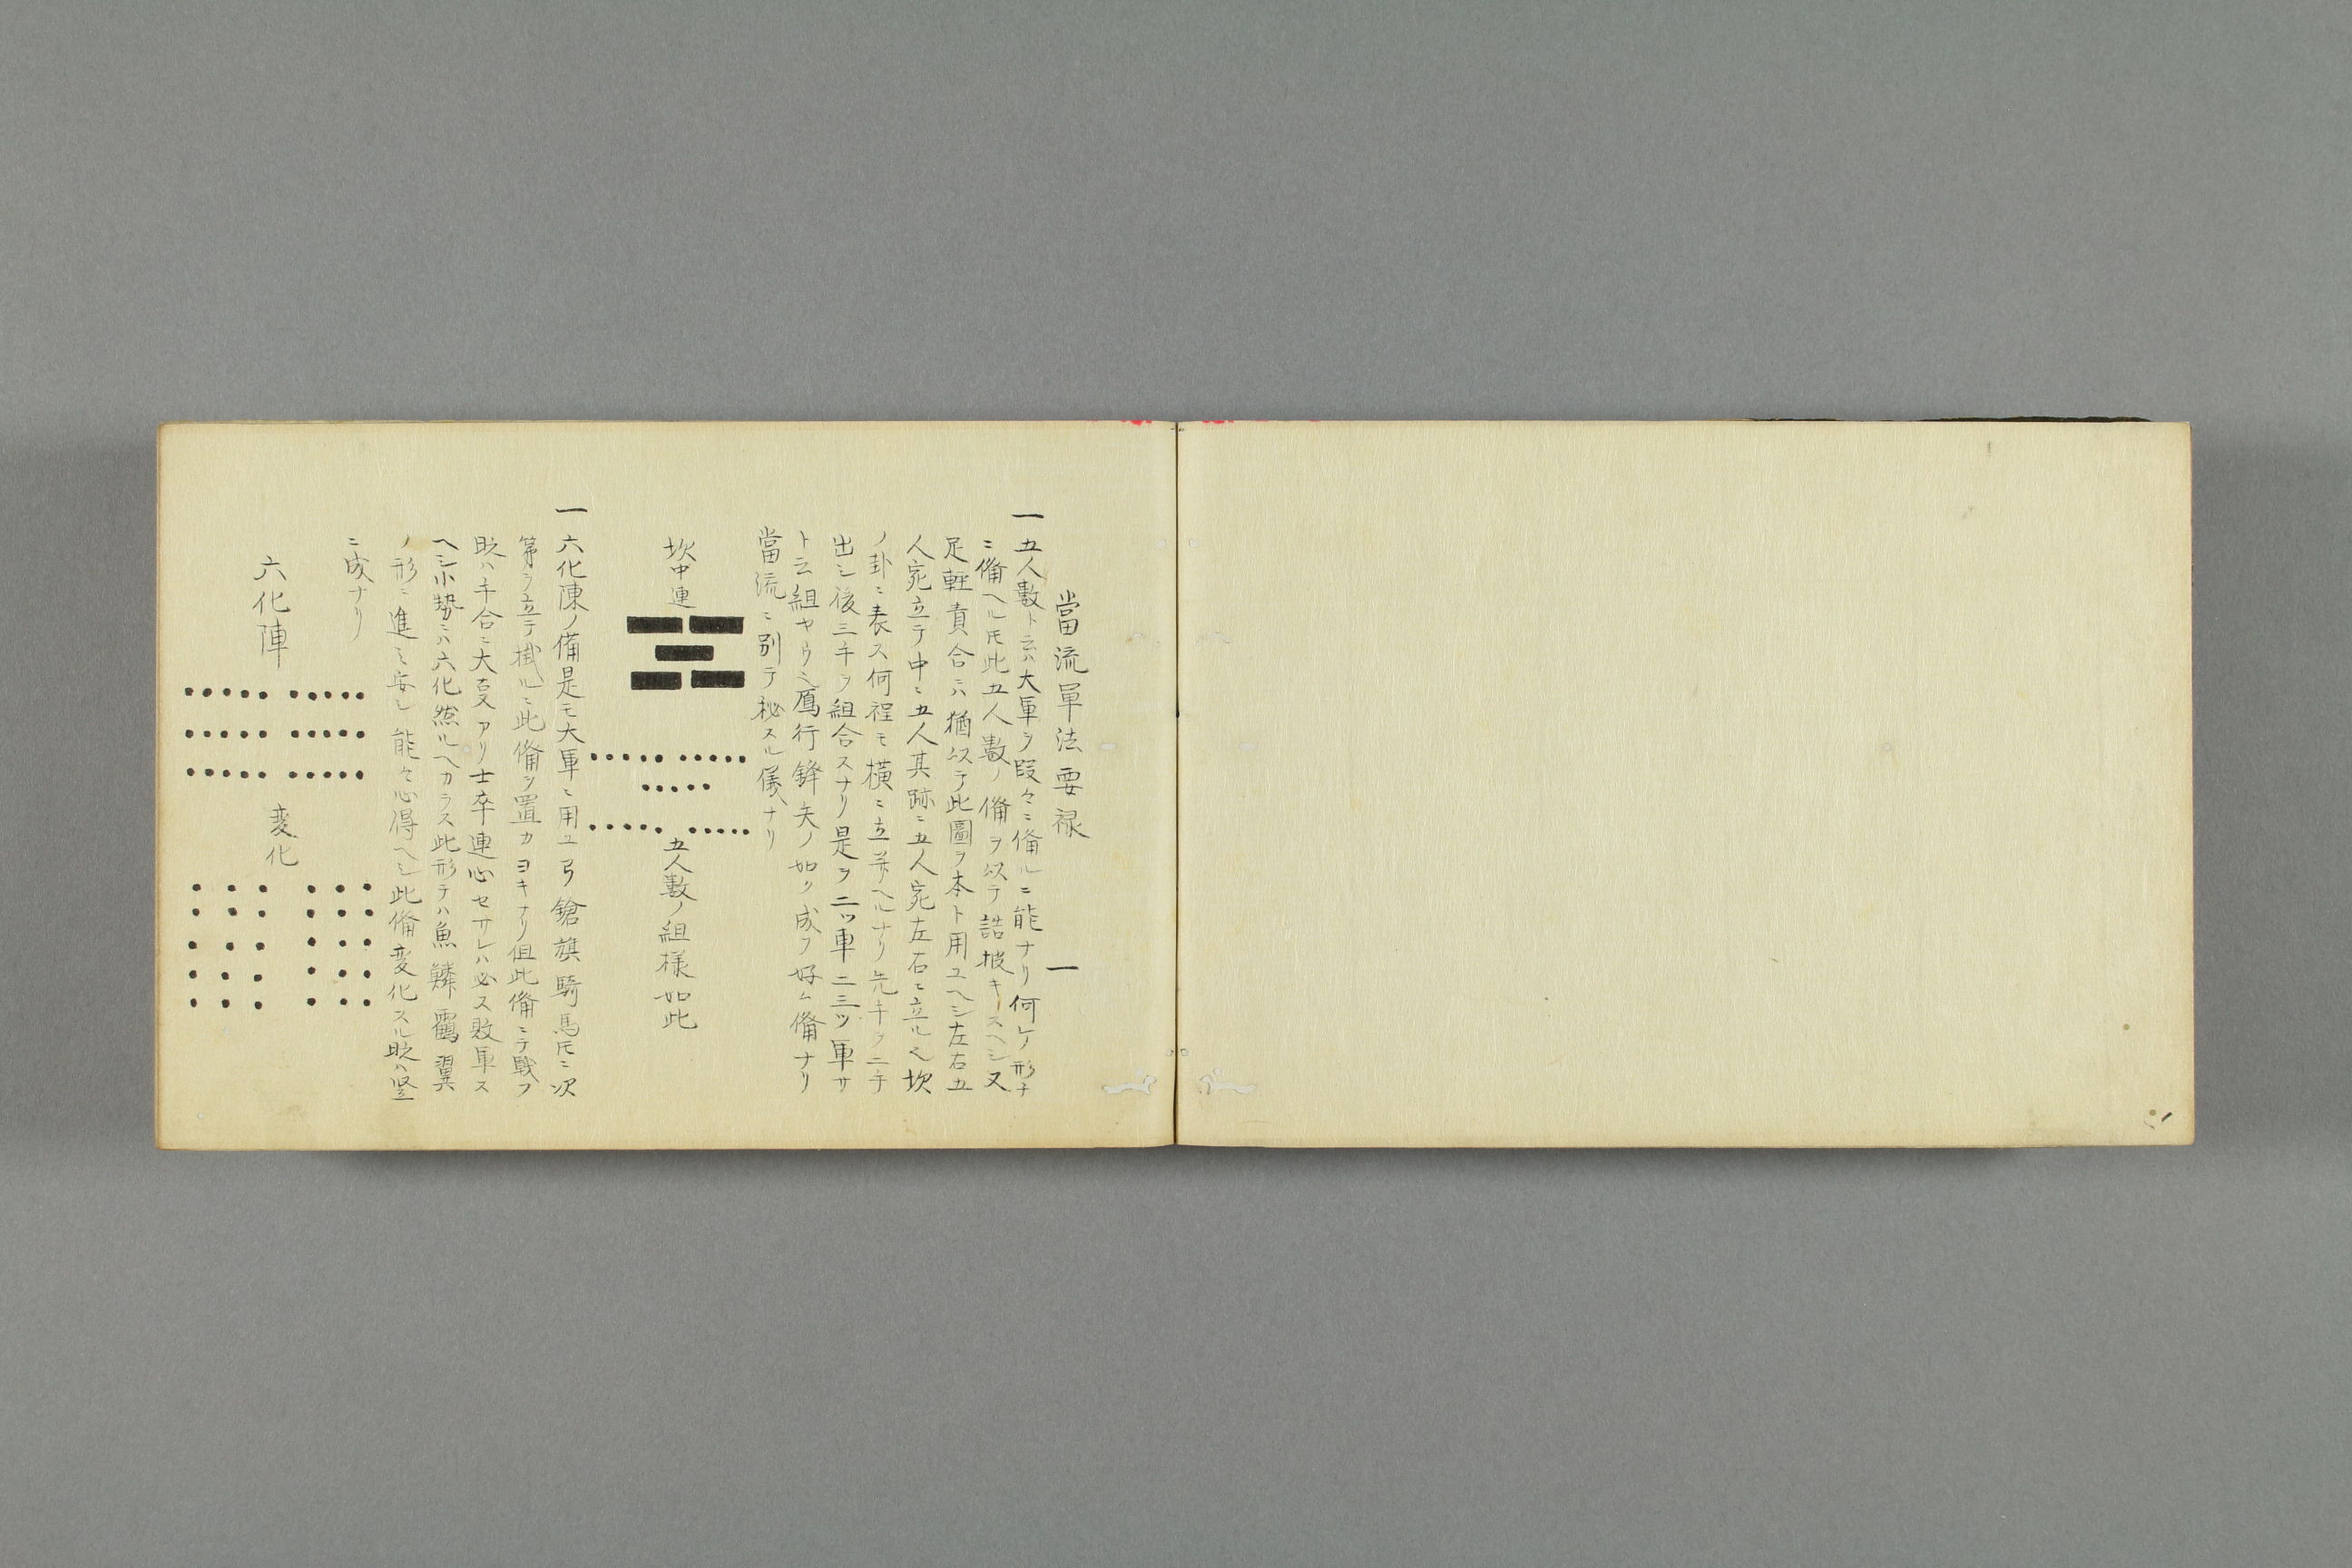 當流軍法要禄　一
一五人數ト云ハ大軍ヲ段々ニ備ルニ能ナリ何レノ形チ
ニ備ヘルモ此五人數ノ備ヲ以テ詰披キスヘシ又
足軽責合ニハ猶以テ此圖ヲ本ト用ユヘシ左右五
人宛立テ中ニ五人其跡ニ五人宛左右ニ立ル也坎
ノ卦ニ表ス何程モ横ニ立並ヘルナリ先キヲ二手
出シ後三手ヲ組合スナリ是ヲ二ツ車二三ツ軍サ
ト云組ヤウ也鳫行鋒矢ノ如ク成ヲ好ム備ナリ
當流ニ別テ秘スル儀ナリ
坎中連
五人數ノ組様如此
一六化陳ノ備是モ大軍ニ用ユ弓鎗旗騎馬モニ次
第ヲ立テ掛ルニ此備ヲ置カヨキナリ但此備ニテ戰フ
時ハ手合ニ大変アリ士卒連心セサレハ必ス敗軍ス
ヘシ小勢ニハ六化然ルヘカラス此形テハ魚鱗鶴翼
ノ形ニ進ミ安シ能々心得ヘシ此備変化スル時ハ竪
ニ成ナリ
六化陣
変化